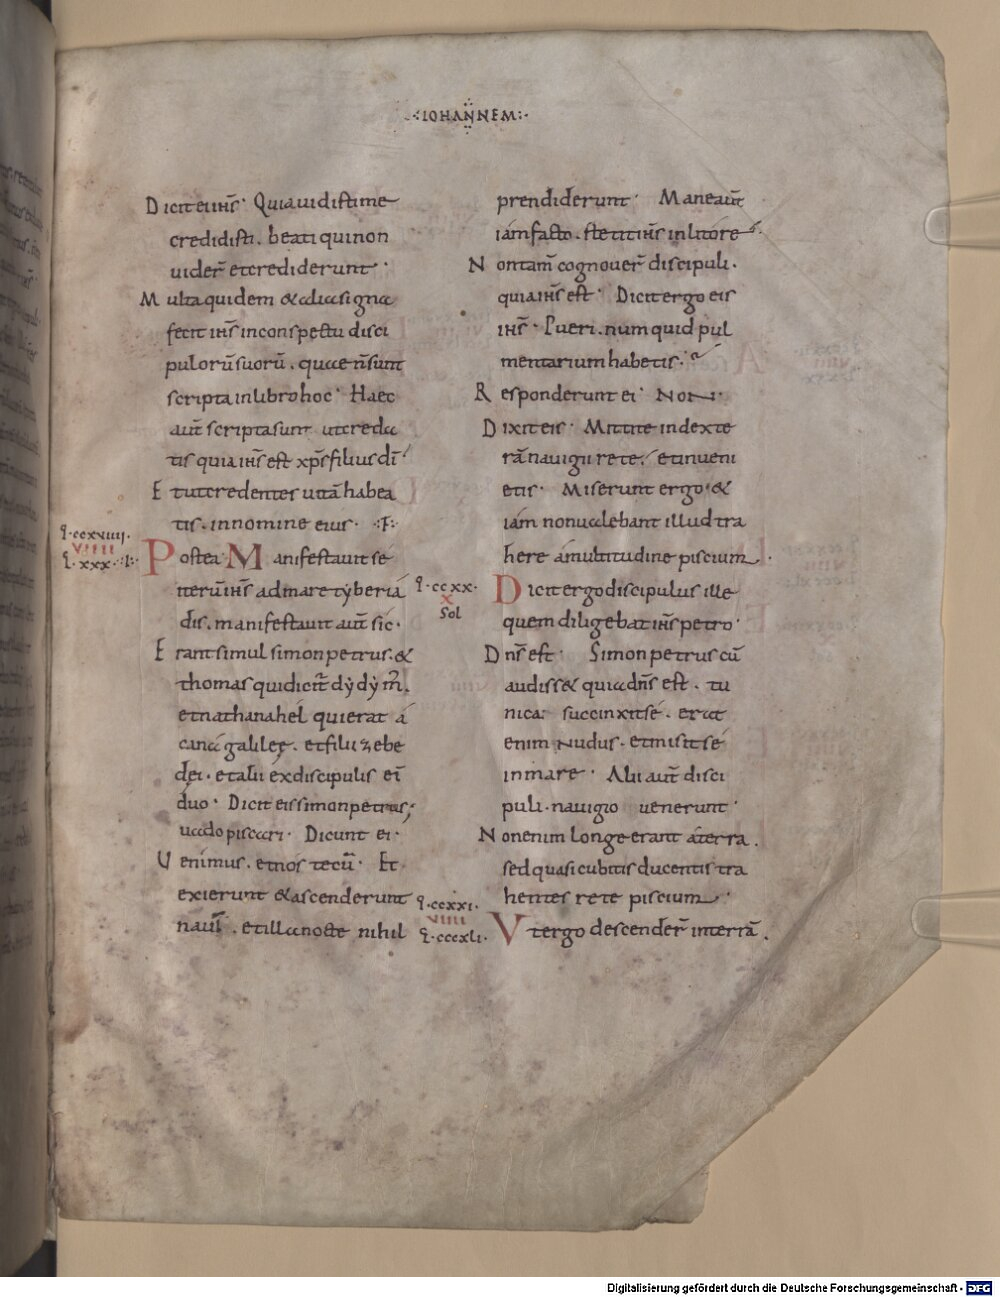 ·:IOHANNEM:·
Dicit ei ihs̄· Quia uidisti me
credidisti. beati qui non
uider̄ et crediderunt·
Multa quidem & alia signa
fecit ihs̄ in conspectu disci
pulorū suorū. quae n̄ sunt
scripta in libro hoc· Haec
aut̄ scripta sunt ut creda
tis quia ihs̄ est xp̄s filius dī·
Et ut credentes uitā habea
tis. in nomine eius· :F:
·ccxviiii·
VIIII
·xxx·
Postea Manifestauit sé
iterū ihs̄ ad mare tẏberia
dis. manifestauit aut̄ sic·
Erant simul simon petrus. &
thomas qui dicit̄ dẏdẏm̄.
et nathanahel qui erat á
cana galileę. et filii zebe
dei. et alii ex discipulis ei᷒
duo· Dicit eis simon petrus;
uado piscari· Dicunt ei·
Uenimus. et nos tecū· Et
exierunt & ascenderunt
nauī. et illa nocte nihil
·ccxx·
X
Sol
·ccxxi·
VIIII
·cccxli·
prendiderunt· Mane aut̄
iám facto. stetit ihs̄ in litore
Non tam̄ cognouer̄ discipuli.
quia ihs̄ est· Dicit ergo eis
ihs̄· Pueri. numquid pul
mentarium habetis·
Responderunt ei· Non·
Dixit eis· Mittite in dexte
rā nauigii rete. et inueni
etis· Miserunt ergo· &
iám non ualebant illud tra
here á multitudine piscium.
Dicit ergo discipulus ille
quem diligebat ihs̄ petro·
Dn̄s est· Simon petrus cū
audiss& quia dn̄s est. tu
nica succinxit sé. erat
enim nudus. et misit sé
in mare· Alii aut̄ disci
puli. nauigio uenerunt·
Non enim longe erant á terra.
sed quasi cubitis ducentis tra
hentes rete piscium·
Vt ergo descender̄ in terrā.
Digitalisierung gefördert durch die Deutsche Forschungsgemeinschaft - DFG